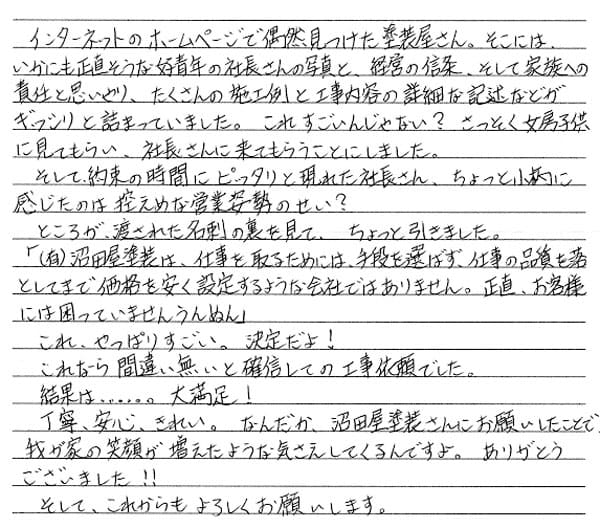 インターネットのホームページで偶然見つけた塗装屋さん。そこには、
いかにも正直そうな好青年の社長さんの写真と、経営の信条、そして家族への
責任と思いやり、たくさんの施工例と工事内容の詳細な記述などが
ギッシリと詰まっていました。これすごいんじゃない？さっそく女房子供
に見てもらい、社長さんに来てもらうことにしました。
そして、約束の時間にピッタリと現れた社長さん、ちょっと小柄に
感じたのは控えめな営業姿勢のせい？
ところが、渡された名刺の裏を見て、ちょっと引きました。
「(有)沼田屋塗装は、仕事を取るためには、手段を選ばず、仕事の品質を落
としてまで価格を安く設定するような会社ではありません。正直、お客様
には困っていませんうんぬん」
これ、やっぱりすごい。決定だよ！
これなら間違い無いと確信しての工事依頼でした。
結果は、、、、、。大満足！
丁寧、安心、きれい。なんだか、沼田屋塗装さんにお願いしたことで、
我が家の笑顔が増えたような気さえしてくるんですよ。ありがとう
ございました！！
そして、これからもよろしくお願いします。